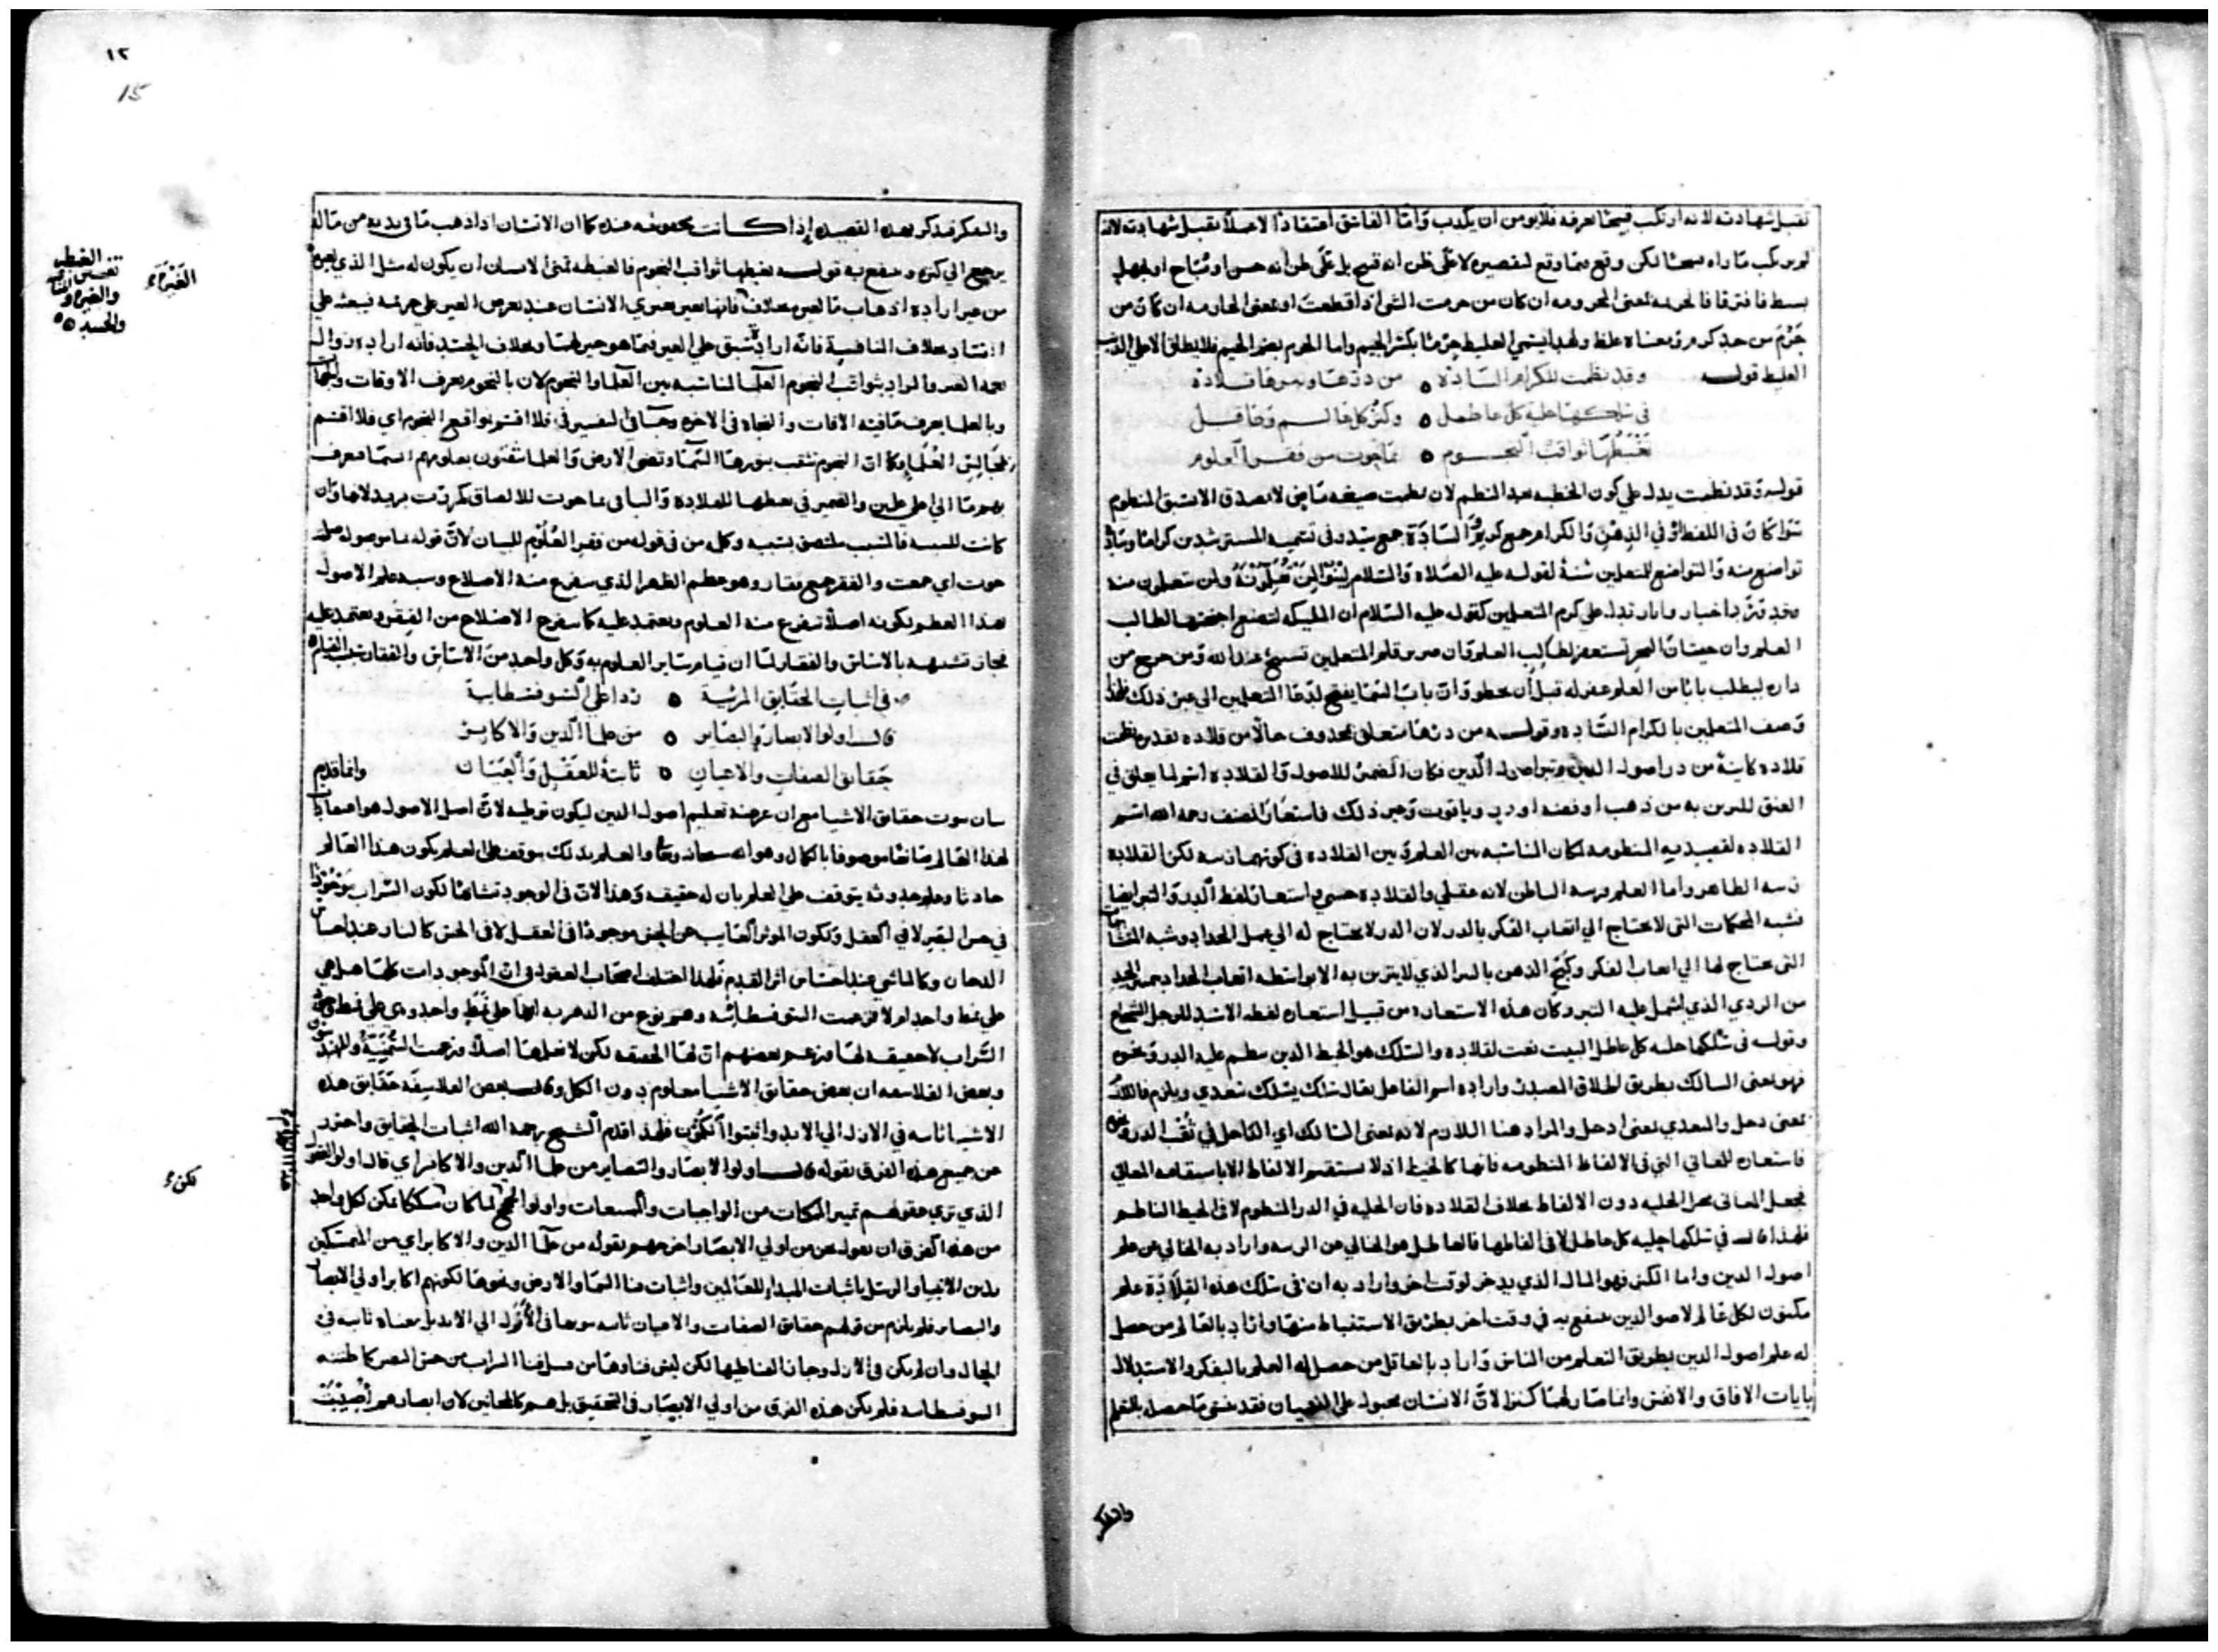 تقبل شهادته لانه ارتكب قبيحا عرفه فلا يومن ان يكذب وامّا الفاسق اعتقادا لا عملا تقبل شهادته لانه
لم يرتكب ما راه قبيحا لكن وقع فيما وقع لا على ظن انه قبيح بل على ظن انه حسن او مباح
فالجرمة بمعنى المجرومة ان كان من جرمت الشي اذا قطعت او بمعنى الجارمة ان كان من
العليط قوله وقد نظمت للكرام السّادة ٥ من درّها وتبرها قلادة
في سلكها حلية كل عاطل ٥ وكنز كل عالم وعاقل
تغبطها ثواقب النجوم ٥ بما حوت من فقر العلوم
قوله وقد نظمت يدل على كون الخطبة بعد النظم لان نظمت صيغة ماض لا يصدق الا بسبق المنظوم
سوا كان في اللفظ او في الذهن والكرام جمع كريم والسّادة جمع سيّد وفي تسمية المسترشدين كراما وسادة
تواضع منه والتواضع للمتعلمين سنة لقوله عليه الصلاه والسّلام لينوا لمن تعلمونه ولمن تتعلمون منه
وقد ترد اخبار واثار تدل على كرم المتعلمين كقوله عليه السّلام ان المليكه لتضع اجنحتها لطالب
العلم وان حيتان البحر تستغفر لطالب العلم وان صرير قلم المتعلمين تسبيح عند الله ومن خرج من
داره ليطلب بابا من العلم غفر له قبل ان يخطو وان باب السّما يفتح لدعا المتعلمين الى غير ذلك فلهذا
وصف المتعلمين بالكرام السّاده وقوله من درّها متعلق بمحذوف حالا من قلاده تقديره نظمت
قلاده كاينة من درر اصول الدين وتبر اصول الدّين فكان الضمير للاصول والقلاده اسم لما يعلق في
العنق للتزين به من ذهب او فضه او در وياقوت وغير ذلك فاستعار المصنف رحمه الله اسم
القلاده لقصيدته المنظومه لمكان المناسبه بين العلم وبين القلاده في كونهما زينه لكن القلاده
زينه الظاهر واما العلم فزينه الباطن لانه عقلي والقلاده حسي واستعار لفظ الدر والتبر ايضا
تشبه المحكمات التي لا تحتاج الى اتعاب الفكر بالدر لان الدر لا يحتاج له الى عمل الحداد وشبه المتشابهات
التي يحتاج لها الى اتعاب الفكر وكبح الذهن بالتبر الذي لا يتزين به الا بواسطه اتعاب الحداد بتمييز الجيد
من الردي الذي اشمل عليه التبر وكان هذه الاستعاره من قبيل استعاره لفظه الاسد للرجل الشجاع
وقوله في سلكها حلية كل عاطل البيت نعت لقلاده والسلك هو الخيط الذي ينظم عليه الدر ونحوه
فهو بمعنى السالك بطريق اطلاق المصدر وارادة اسم الفاعل يقال سلك يسلك تعدي ويلزم فاللازم
بمعنى دخل والمتعدي بمعنى ادخل والمراد هنا اللازم لانه بمعنى السالك اي الداخل في ثقب الدر ونحوه
فاستعاره للمعاني التي في الالفاظ المنظومه فانها كالخيط اذ لا يستقيم الالفاظ الا باستقامة المعاني
فجعل المعاني محل الحليه دون الالفاظ بخلاف القلاده فان الحليه في الدر المنظوم لا في الخيط الناظم
فلهذا قال في سلكها حلية كل عاطل لا في الفاظها فالعاطل هو الخالي عن الزينه واراد به الخالي عن علم
اصول الدين واما الكنز فهو المال الذي يدخر لوقت اخر واراد به ان في سلك هذه القلادة علم
مكنون لكل عالم لاصول الدين ينتفع به في وقت اخر بطريق الاستنباط منها واراد بالعالم من حصل
له علم اصول الدين بطريق التعلم من الناس واراد بالعاقل من حصل له العلم بالتفكر والاستدلال
بايات الافاق والانفس وانما صار لهما كنزا لانّ الانسان مجبول على النسيان فقد نسي ما حصل بالتعلم
والتفكر
١٢
15
والتفكر فيذكر بهذه القصيده اذا كانت محفوظه عنده كما ان الانسان اذا ذهب ما في يديه من ماله
يرجع الى كنزه وينتفع به قوله تغبطها ثواقب النجوم فالغبطه تمني الانسان ان يكون له مثل الذي لغيره
من غير ارادة اذهاب ما لغيره بخلاف الغيرة فانها تغير يعتري الانسان عند تعرض الغير على حرمه فيبعثه على
بخلاف المنافسة فانه ارادة سبق على الغير فيما هو خير لهما وبخلاف الحسد فانه ارادة زوال
نعمة الغير والمراد بثواقب النجوم العلما لمناسبه بين العلما والنجوم لان بالنجوم يعرف الاوقات والجهات
وبالعلما يعرف ما فيه الافات والنجاه في الاخره وجا في التفسير في فلا اقسم بمواقع النجوم اي فلا اقسم
بمجالس العلما وكما ان النجوم تثقب بنورها السّما وتضي الارض والعلما يثقبون بعلومهم السّما
والضمير في تغبطها للقلاده والبا في بما حوت للالصاق كمررت بزيد لانها وان
كانت للسببيه فالسبب ملتصق بسببه وكلمه من في قوله من فقر العُلُوم للبيان لانّ قوله ما موصوله صلته
حوت اي جمعت والفقر جمع فقار وهو عظم الظهر الذي يتفرع منه الاضلاع وشبه علم الاصول
بهذا العظم لكونه اصلا تتفرع منه العلوم ويعتمد عليه كما يتفرع الاضلاع من الفقر ويعتمد عليه
في اثبات الحقايق المرئية ٥ ردا على السوفسطايية
قال اولوا الابصار والبصاير ٥ من علما الدين والاكابر
حقايق الصفات والاعيان ٥ ثابتة للعقل والعيان وانما قدم
بيان ثبوت حقايق الاشيا مع ان غرضه تعليم اصول الدين ليكون توطيه لانّ اصل الاصول هو
لهذا العالم صانعا موصوفا بالكمال وهو الله سبحانه وتعالى والعلم بذلك يتوقف على العلم بكون هذا العالم
حادثا وعلم حدوثه يتوقف على العلم بان له حقيقه وهذا لان في الوجود تشابها لكون السّراب موجودا
في حس البصر لا في العقل ولكون الموثر الغايب عن الحس موجودا في العقل لا في الحس كالنار عند احساس
الدخان وكالباني عند احساس اثر القدم فلهذا اختلف اصحاب العقول في انّ الموجودات كلها هل هي
على نمط واحد ام لا فزعمت السوفسطائية وهم نوع من الدهريه انها على نمط واحد وهي على نمط
السّراب لا حقيقه لها وزعم بعضهم ان لها الحقيقه لكن لا نعلمها اصلا وزعمت السُّمَنيّة والهند
وبعض الفلاسفه ان بعض حقايق الاشيا معلوم دون الكل وقال بعض الفلاسفة حقايق هذه
الاشيا ثابته في الازل الى الابد واثبتوا فلهذا اقدم الشيخ رحمه الله اثبات الحقايق واحترز
عن جميع هذه الفرق بقوله قال اولوا الابصار والبصاير من علما الدين والاكابر اي قال اولوا العقول
الذي ترى عقولهم تمييز الممكنات من الواجبات والممتنعات
من هذه الفرق ان يقول نحن من اولي الابصار اخرجهم بقوله من علما الدين والاكابر اي من المتمسكين
بدين الانبيا والرسل باثبات المبدا للعالمين واثبات فنا السّما والارض ونحوها لكونهم اكابر اولي الابصار
والبصاير فلم يلزم من قولهم حقايق الصفات والاعيان ثابته ثبوتها في الازل الى الابد بل معناه ثابته في
الحال وان لم يكن في الازل
السوفسطاييه فلم يكن هذه الفرق من اولي الابصار في التحقيق بل هم كالمجانين لان ابصارهم اُصيبت
الغَيْرَة
الغبطه
والغيرة و
والحسد
لكن